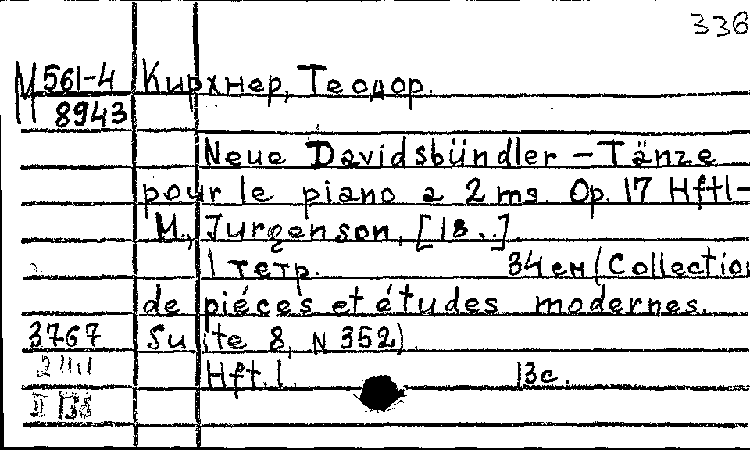 336
М 561-4 Кирхнер, Теодор.
8943
Neue Davidsbündler - Tänze
pour le piano a 2 ms. Op. 17 Hft1-
М., Jurgenson, [18..].
1 тетр. 34 см (Collection
de piéces et études modernes.
3767 Suite 8, N 352)
Hft. 1 13с.